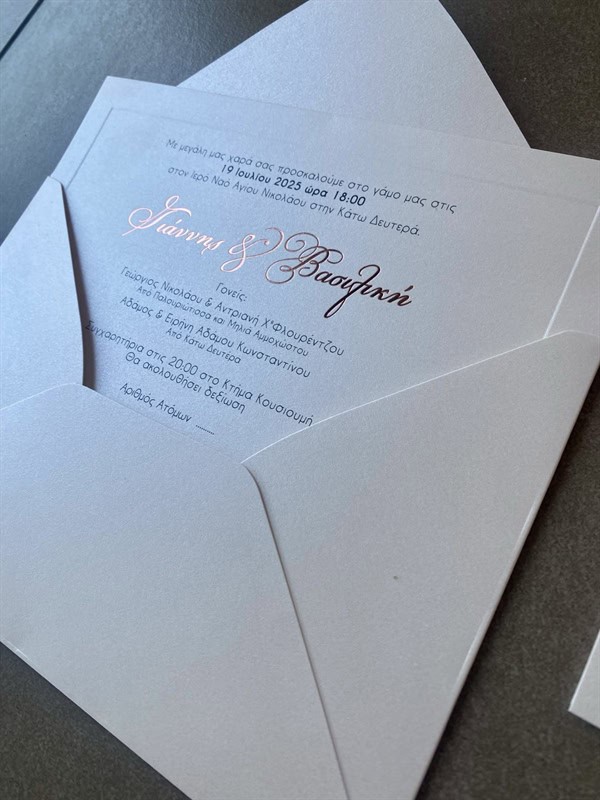 Με μεγάλη μας χαρά σας προσκαλούμε στο γάμο μας στις
19 Ιουλίου 2025 ώρα 18:00
στον Ιερό Ναό Αγίου Νικολάου στην Κάτω Δευτερά.
Γιάννης & Βασιλική
Γονείς:
Γεώργιος Νικολάου & Αντριανή Χ"Φλουρέντζου
Από Παλουριώτισσα και Μηλιά Αμμοχώστου
Αδάμος & Ειρήνη Αδάμου Κωνσταντίνου
Από Κάτω Δευτερά
Συγχαρητήρια στις 20:00 στο Κτήμα Κουσιουμή
Θα ακολουθήσει δεξίωση
Αριθμός Ατόμων ........